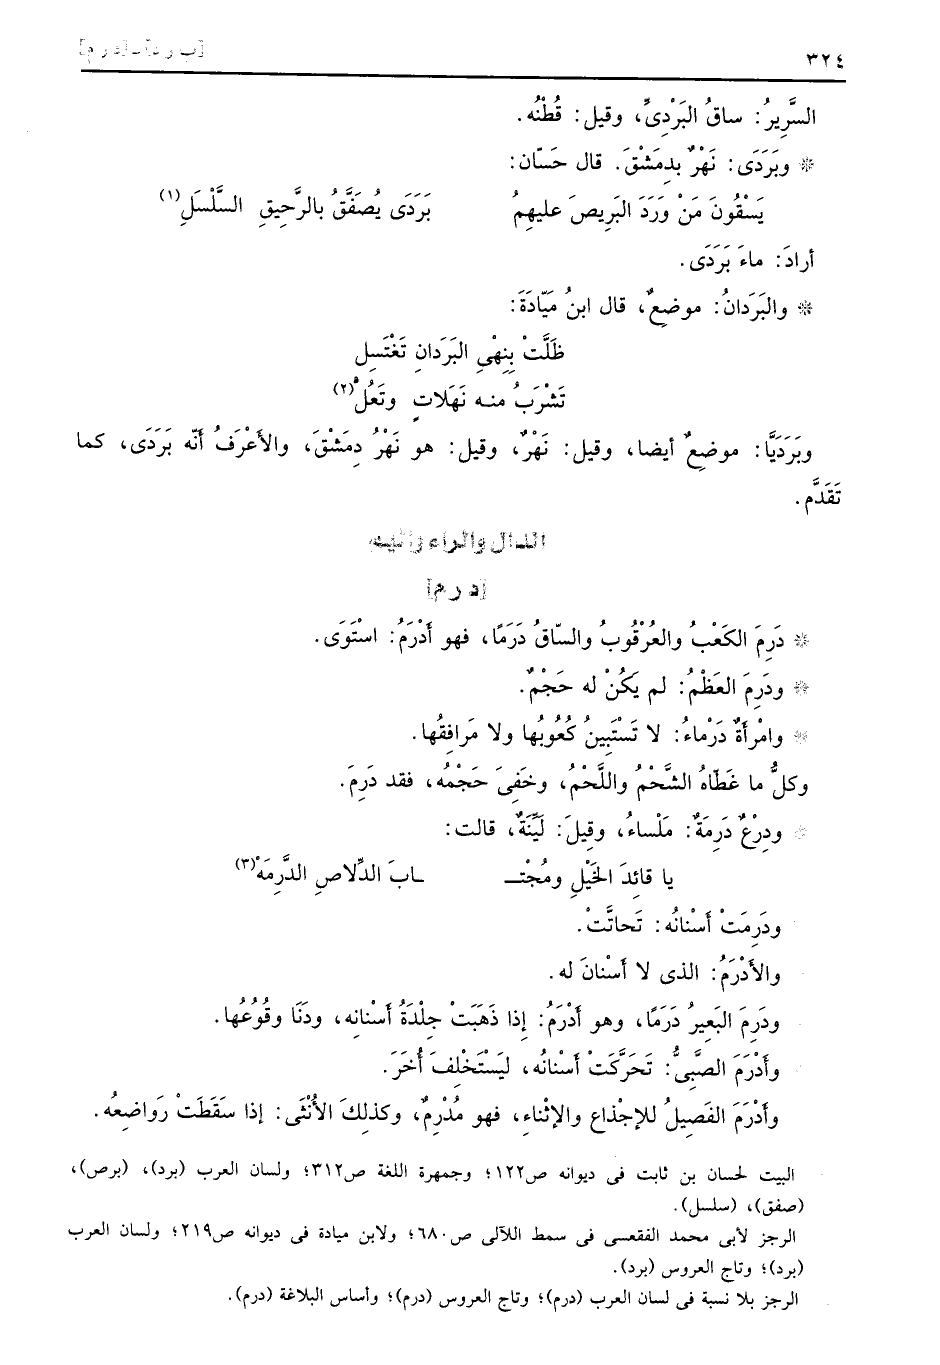 ٣٢٤
[ب ر د] ـ [د ر م]
السَّرِيرُ: ساقُ البَرْدِىِّ، وقيل: قُطْنُه.
* وبَرَدَى: نَهْرٌ بدِمَشْقَ. قال حَسّان:
يَسْقُونَ مَنْ وَرَدَ البَرِيصَ عليهِمُ بَرَدَى يُصَفَّقُ بالرَّحِيقِ السَّلْسَلِ(١)
أرادَ: ماءَ بَرَدَى.
* والبَرَدانُ: موضِعٌ، قال ابنُ مَيّادَةَ:
ظَلَّتْ بِنِهْىِ البَرَدانِ تَغْتَسِل
تَشْرَبُ منه نَهَلاتٍ وتَعُلْ(٢)
وبَرَدَيَّا: موضِعٌ أيضا، وقيل: نَهْرٌ، وقيل: هو نَهْرُ دِمَشْقَ، والأَعْرَفُ أنّه بَرَدَى، كما
تَقَدَّم.
الدال والراء والميم
[د ر م]
* دَرِمَ الكَعْبُ والعُرْقُوبُ والسّاقُ دَرَمًا، فهو أَدْرَمُ: اسْتَوَى.
* ودَرِمَ العَظْمُ: لم يَكُنْ له حَجْمٌ.
* وامْرأَةٌ دَرْماءُ: لا تَسْتَبِينُ كُعُوبُها ولا مَرافِقُها.
وكلُّ ما غَطّاهُ الشَّحْمُ واللَّحْمُ، وخَفِىَ حَجْمُه، فقد دَرِمَ.
* ودِرْعٌ دَرِمَةٌ: مَلْساءُ، وقِيلَ: لَيِّنَةٌ، قالت:
يا قائدَ الخَيْلِ ومُجْتـ ـابَ الدِّلاصِ الدَّرِمَهْ(٣)
ودَرِمَتْ أَسْنانُه: تَحاتَّتْ.
والأَدْرَمُ: الذى لا أَسْنانَ له.
ودَرِمَ البَعِيرُ دَرَمًا، وهو أَدْرَمُ: إذا ذَهَبَتْ جِلْدَةُ أَسْنانِه، ودَنَا وقُوعُها.
وأَدْرَمَ الصَّبِىُّ: تَحَرَّكَتْ أسْنانُه، ليَسْتَخْلِفَ أُخَرَ.
وأَدْرَمَ الفَصِيلُ للإجْذاعِ والإثْناءِ، فهو مُدْرِمٌ، وكذلِكَ الأُنْثَى: إذا سَقَطَتْ رَواضِعُه.
البيت لحسان بن ثابت فى ديوانه ص١٢٢؛ وجمهرة اللغة ص٣١٢؛ ولسان العرب (برد)، (برص)،
(صفق)، (سلسل).
الرجز لأبى محمد الفقعسى فى سمط اللآلى ص٦٨٠؛ ولابن ميادة فى ديوانه ص٢١٩؛ ولسان العرب
(برد)؛ وتاج العروس (برد).
الرجز بلا نسبة فى لسان العرب (درم)؛ وتاج العروس (درم)؛ وأساس البلاغة (درم).